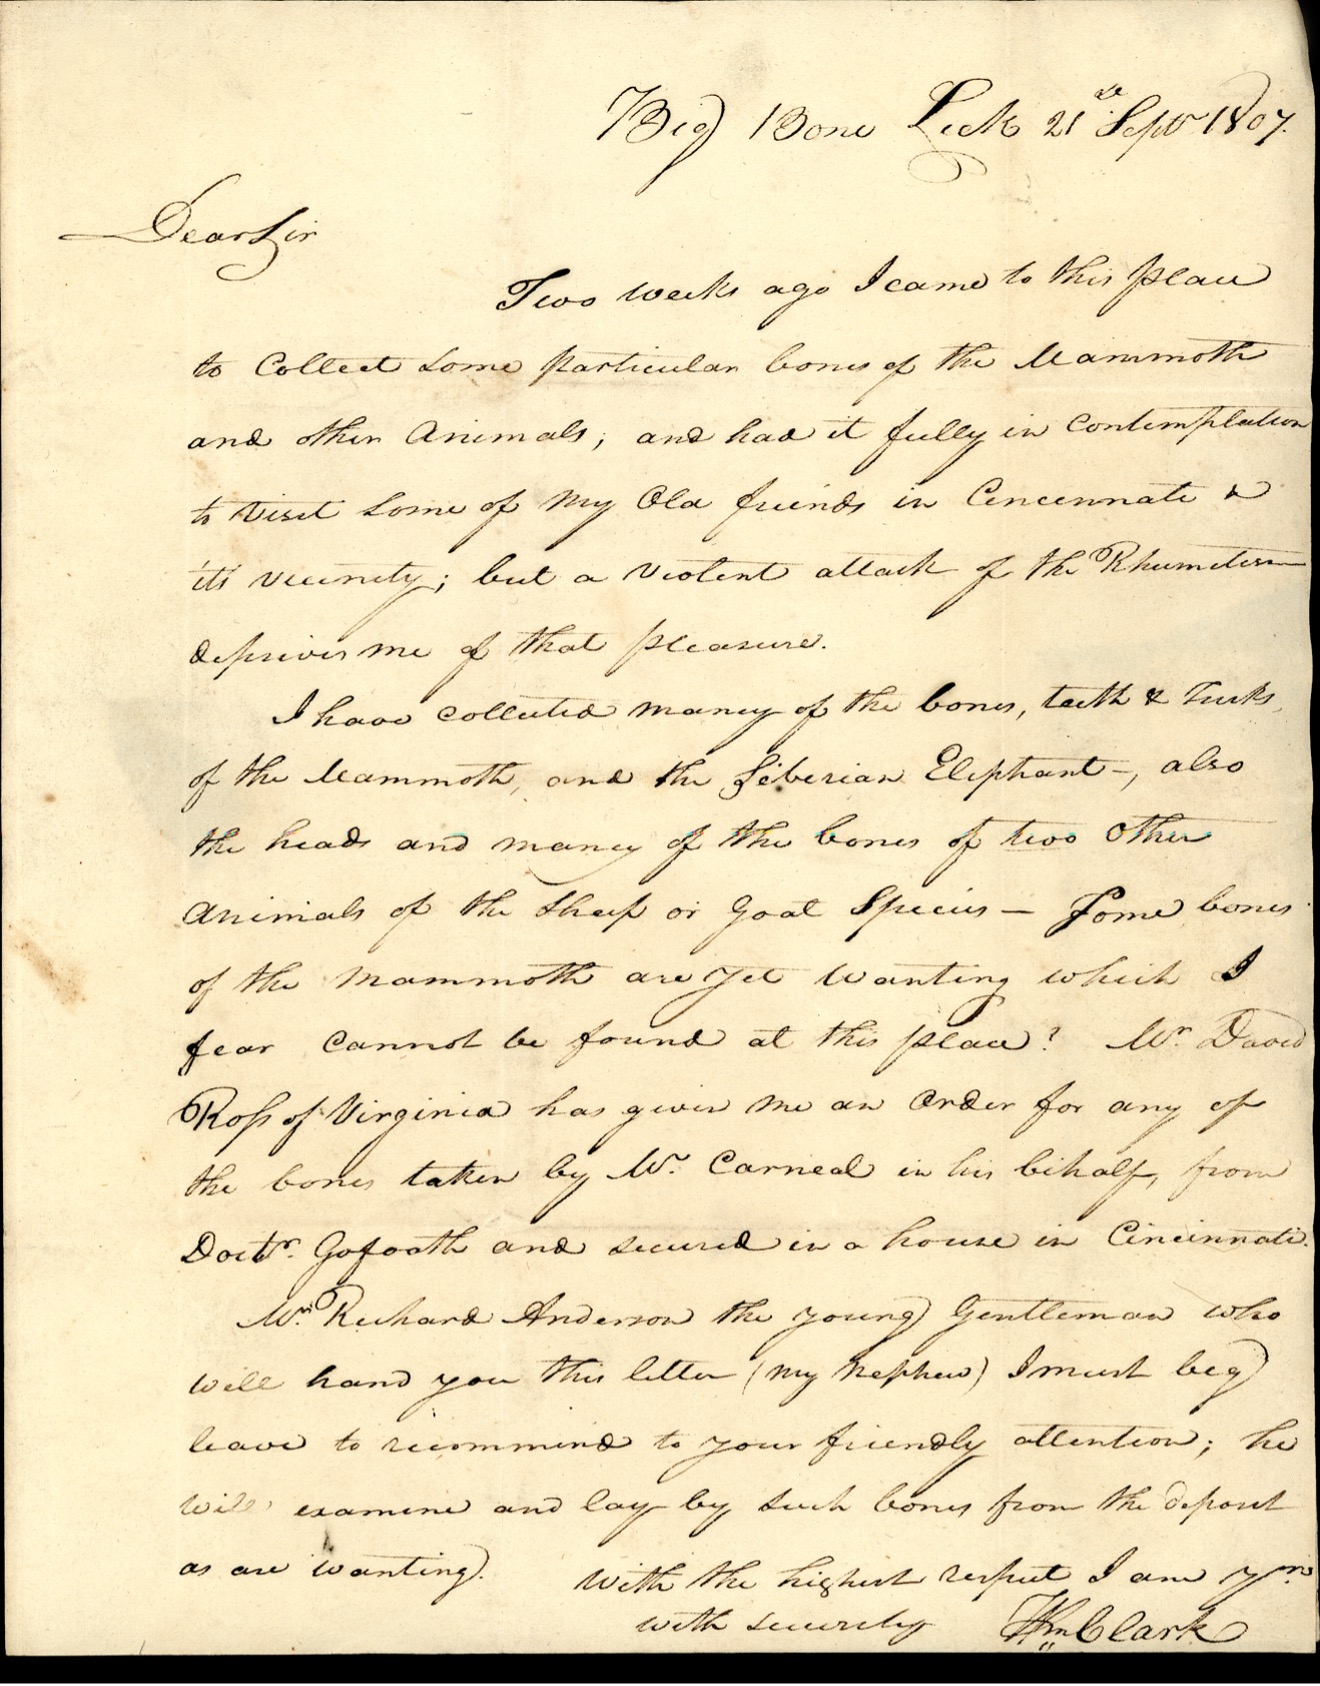 Big Bone Lick 21st Septr 1807.
Dear Sir
Two weeks ago I came to this place
to Collect Some particular bones of the Mammoth
and other Animals; and had it fully in Contemplation
to Visit Some of my Old friends in Cincennate &
it's vicinity; but a violent attack of the Rhumitism
deprives me of that pleasure.
I have collected maney of the bones, teeth & Tusks,
of the Mammoth, and the Siberian Eliphant-, also
the heads and maney of the bones of two other
Animals of the Sheep or Goat Species — Some bones
of the Mammoth are yet wanting which I
fear Cannot be found at this place? Mr. David
Ross of Virginia has given me an Order for any of
the bones taken by Mr. Carneal in his bihalf, from
Doctr. Gofoath and secured in a house in Cincinnati.
Mr. Richard Anderson the young Gentleman who
will hand you this letter (my Nephew) I must beg
leave to recommend to your friendly attention; he
will examine and lay by Such bones from the deposit
as are wanting.
With the highest respect I am yrs
with sincerely
Wm Clark